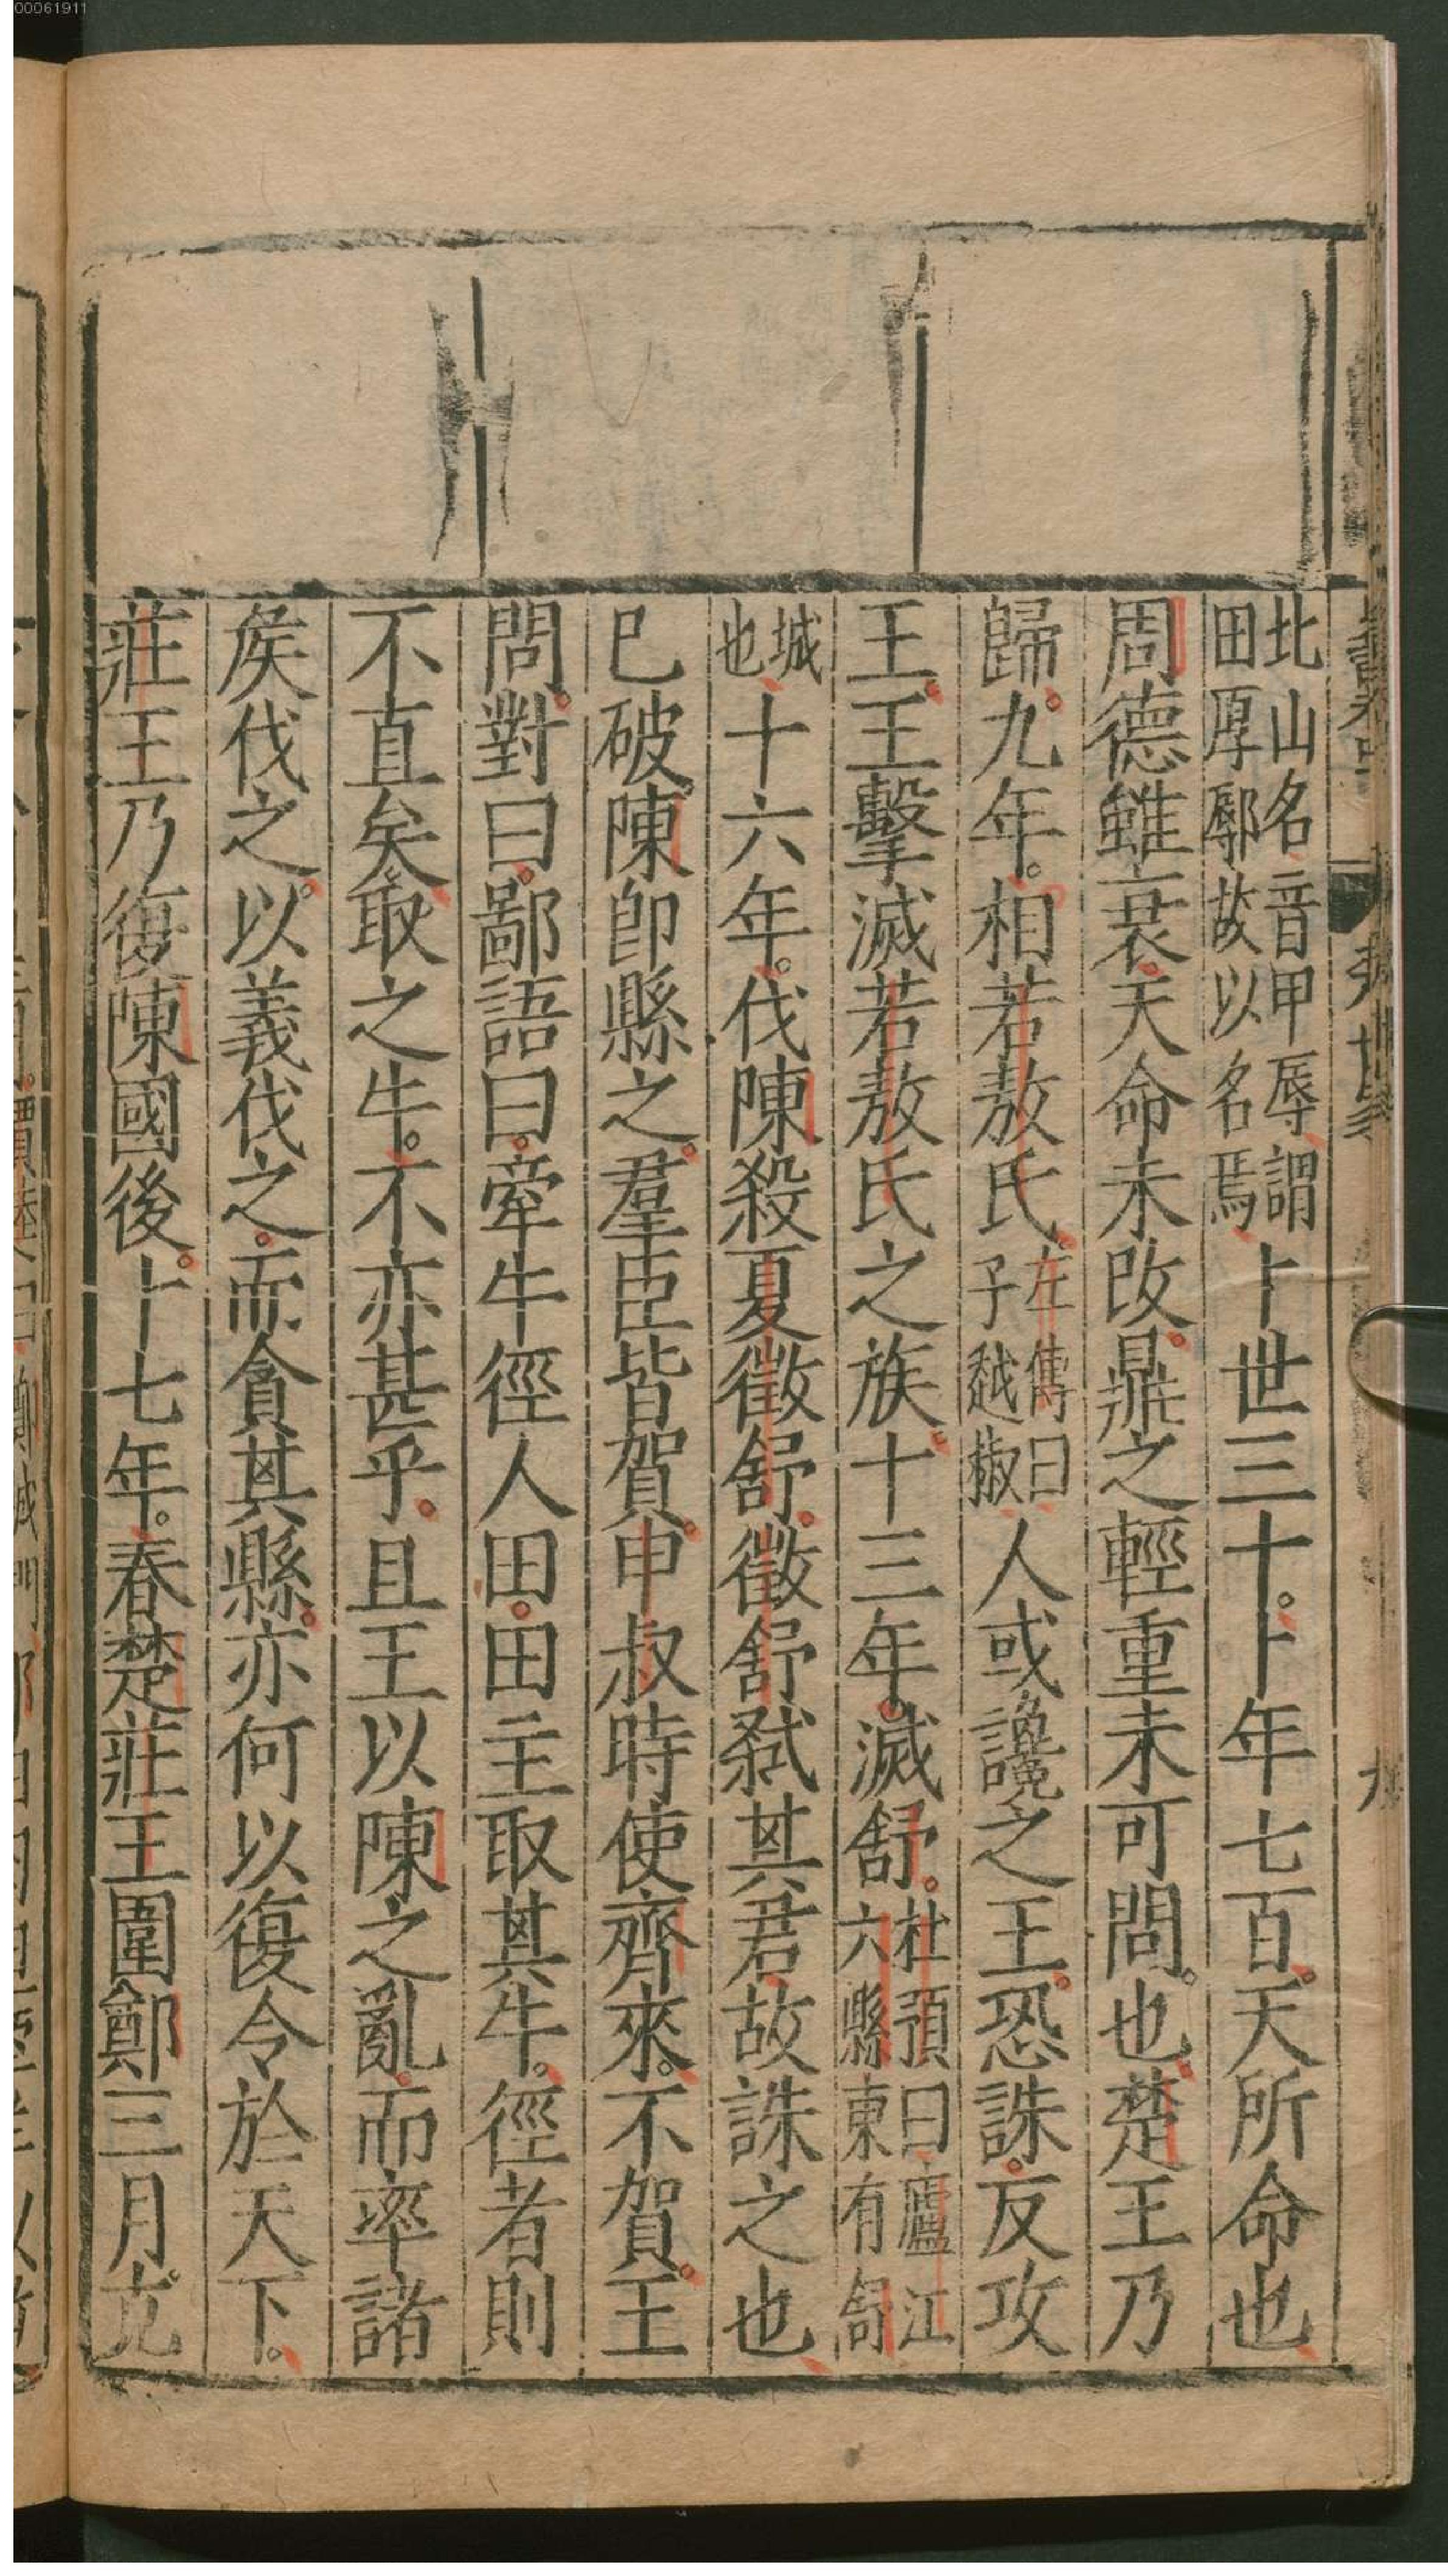 00061911
北山名音甲辱謂
田厚鄏故以名焉卜世三十卜年七百天所命也
周德雖衰天命未改鼎之輕重未可問也楚王乃
歸九年相若敖氏左傳曰子越椒人或讒之王恐誅反攻
王王擊滅若敖氏之族十三年滅舒杜預曰廬江六縣東有舒
城也十六年伐陳殺夏徵舒徵舒弒其君故誅之也
已破陳即縣之羣臣皆賀申叔時使齊來不賀王
問對曰鄙語曰牽牛徑人田田主取其牛徑者則
不直矣取之牛不亦甚乎且王以陳之亂而率諸
矦伐之以義伐之而貪其縣亦何以復令於天下
莊王乃復陳國後十七年春楚莊王圍鄭三月克